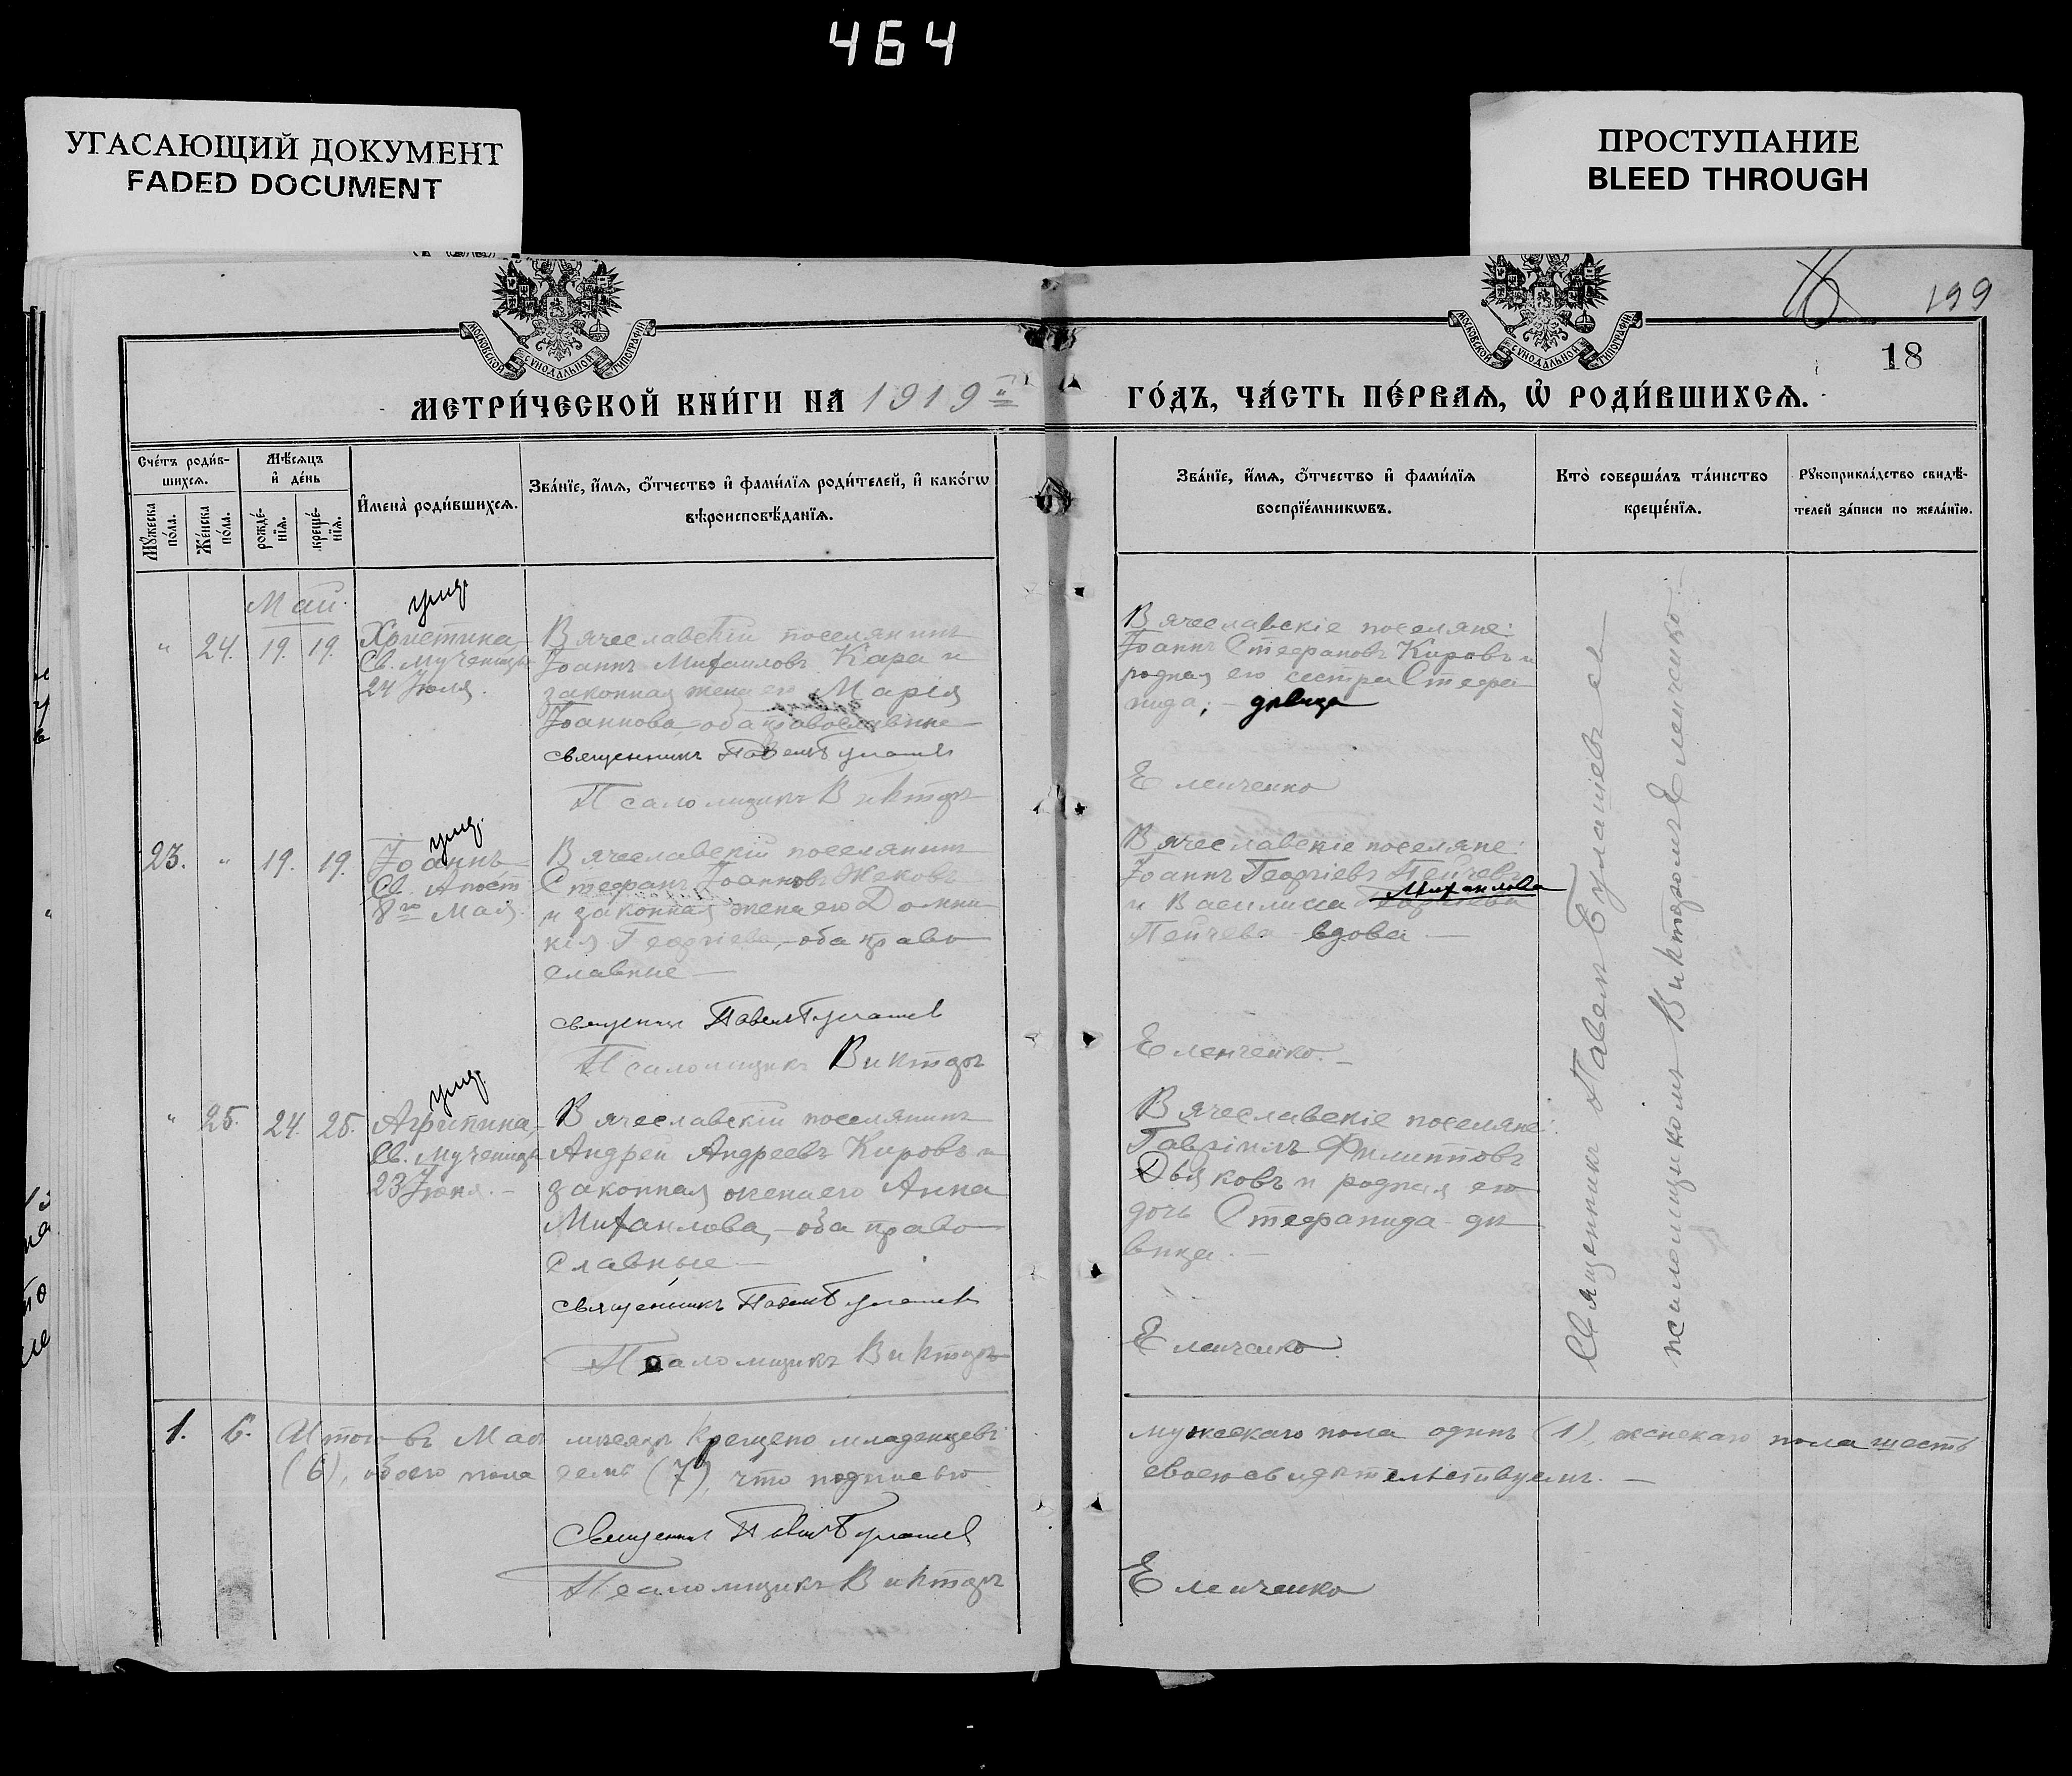 464
УГАСАЮЩИЙ ДОКУМЕНТ
FADED DOCUMENT
ПРОСТУПАНИЕ
BLEED THROUGH
МОСКОВСКОЙ СУНОДАЛЬНОЙ ТИПОГРАФІИ
МОСКОВСКОЙ СУНОДАЛЬНОЙ ТИПОГРАФІИ
199
18
МЕТРИ́ЧЕСКОЙ КНИ́ГИ НА 1919й
ГО́ДЪ, ЧА́СТЬ ПЕ́РВАЯ, Ѡ РОДИ́ВШИХСЯ.
Сче́тъ роди́в-
шихся.
Мꙋ́жеска по́ла.
Же́нска по́ла.
Мѣ́сяцъ
и҆ де́нь
рожде́-
нїя.
креще́-
нїя.
И҆мена̀ роди́вшихся.
Зва́нїе, и҆́мя, ѻ҆́тчество и҆ фами́лїя роди́телей, и҆ како́гѡ
вѣроисповѣ́данїя.
Зва́нїе, и҆́мя, ѻ҆́тчество и҆ фами́лїя
воспрїе́мникѡвъ.
Кто̀ соверша́лъ та́инство
креще́нїя.
Рꙋкоприкла́дство свидѣ́-
телей за́писи по жела́нїю.
Май.
умер.
" 24. 19. 19. Христина,
Св. мученицы
24 Июля.
Вячеславскій поселянинъ
Іоаннъ Михаиловъ Кара и
законная жена его Марія
Іоаннова, оба православные
священникъ Павелъ Булашев
Псаломщикъ Викторъ
Вячеславскіе поселяне:
Іоаннъ Стефановъ Кировъ и
родная его сестра Стефа
нида, - дѣвица
Еленченко
умер.
23. " 19. 19. Іоаннъ
Св. Апост.
8го Мая.
Вячеславскій поселянинъ
Стефанъ Іоанновъ Жековъ
и законная жена его Домни
кія Георгіева, - оба право
славные
священник Павелъ Булашев
Псаломщикъ Викторъ
Вячеславскіе поселяне:
Іоаннъ Георгіевъ Пейчевъ
и Василиса Георгіева Михаилова
Пейчева - вдова
Еленченко.
умер.
" 25. 24. 25. Агрипина,
Св. мученицы
23 Июня.
Вячеславскій поселянинъ
Андрей Андреевъ Кировъ и
законная жена его Анна
Михаилова, - оба право
славные
священникъ Павелъ Булашев
Псаломщикъ Викторъ
Вячеславскіе поселяне:
Гавріилъ Филипповъ
Дьяковъ и родная его
дочь Стефанида - дѣ
вица.
Еленченко.
Священникъ Павелъ Булашевъ съ
псаломщикомъ Викторомъ Еленченко.
1. 6. Итого въ Маѣ мѣсяцѣ крещено младенцевъ
мужескаго пола одинъ (1), женскаго пола шесть
(6), обоего пола семь (7), что подписью
своею свидѣтельствуемъ.
Священник Павелъ Булашев
Псаломщикъ Викторъ
Еленченко